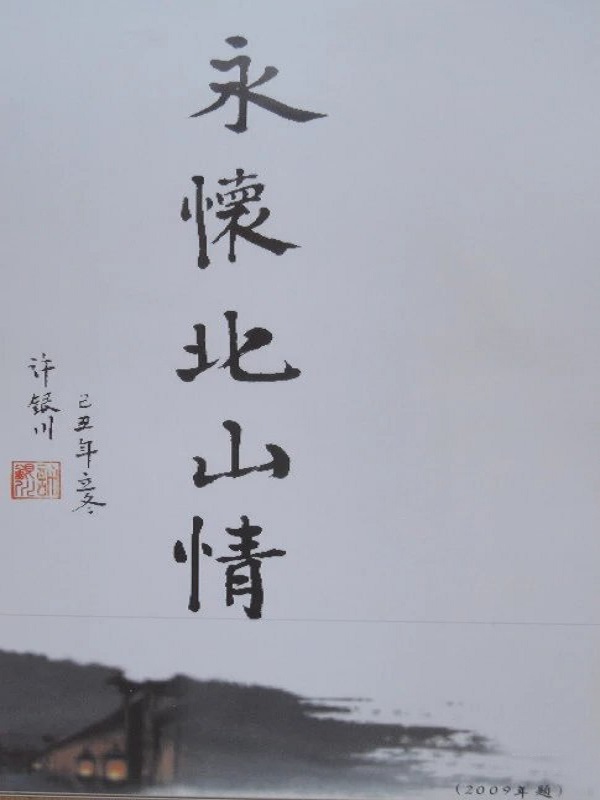 永懷北山情
己丑年立冬
许银川
（2009年题）